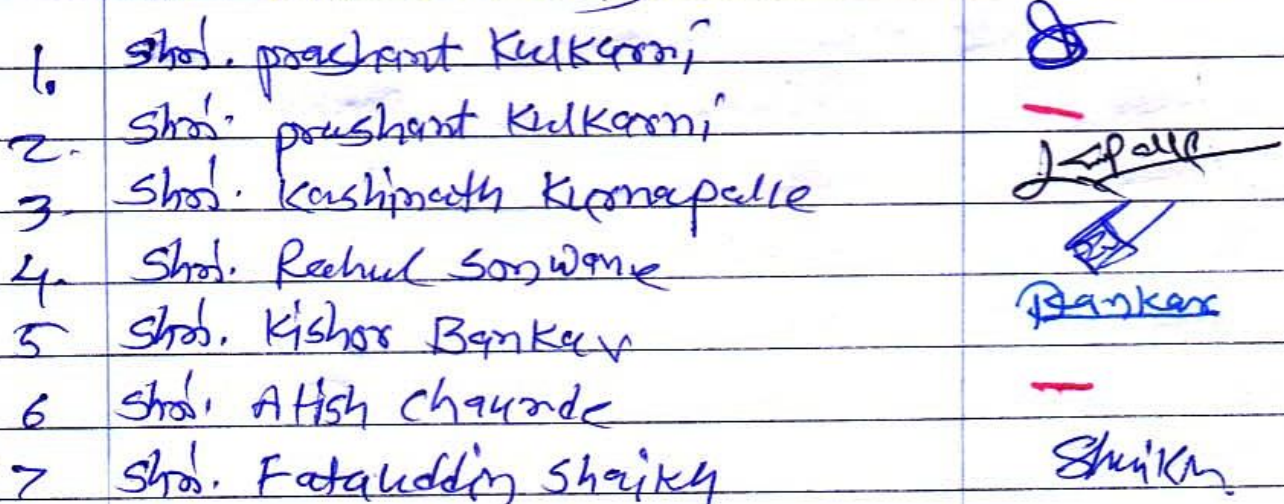 1. Shri. prashant Kulkarni
2. Shri. prashant Kulkarni —
3. Shri. Kashinath Kurnapalle
4. Shri. Rahul Sonwane
5 Shri. Kishor Bankar Bankar
6 Shri. Atish Chaunde —
7 Shri. Fataluddin Shaikh Shaikh